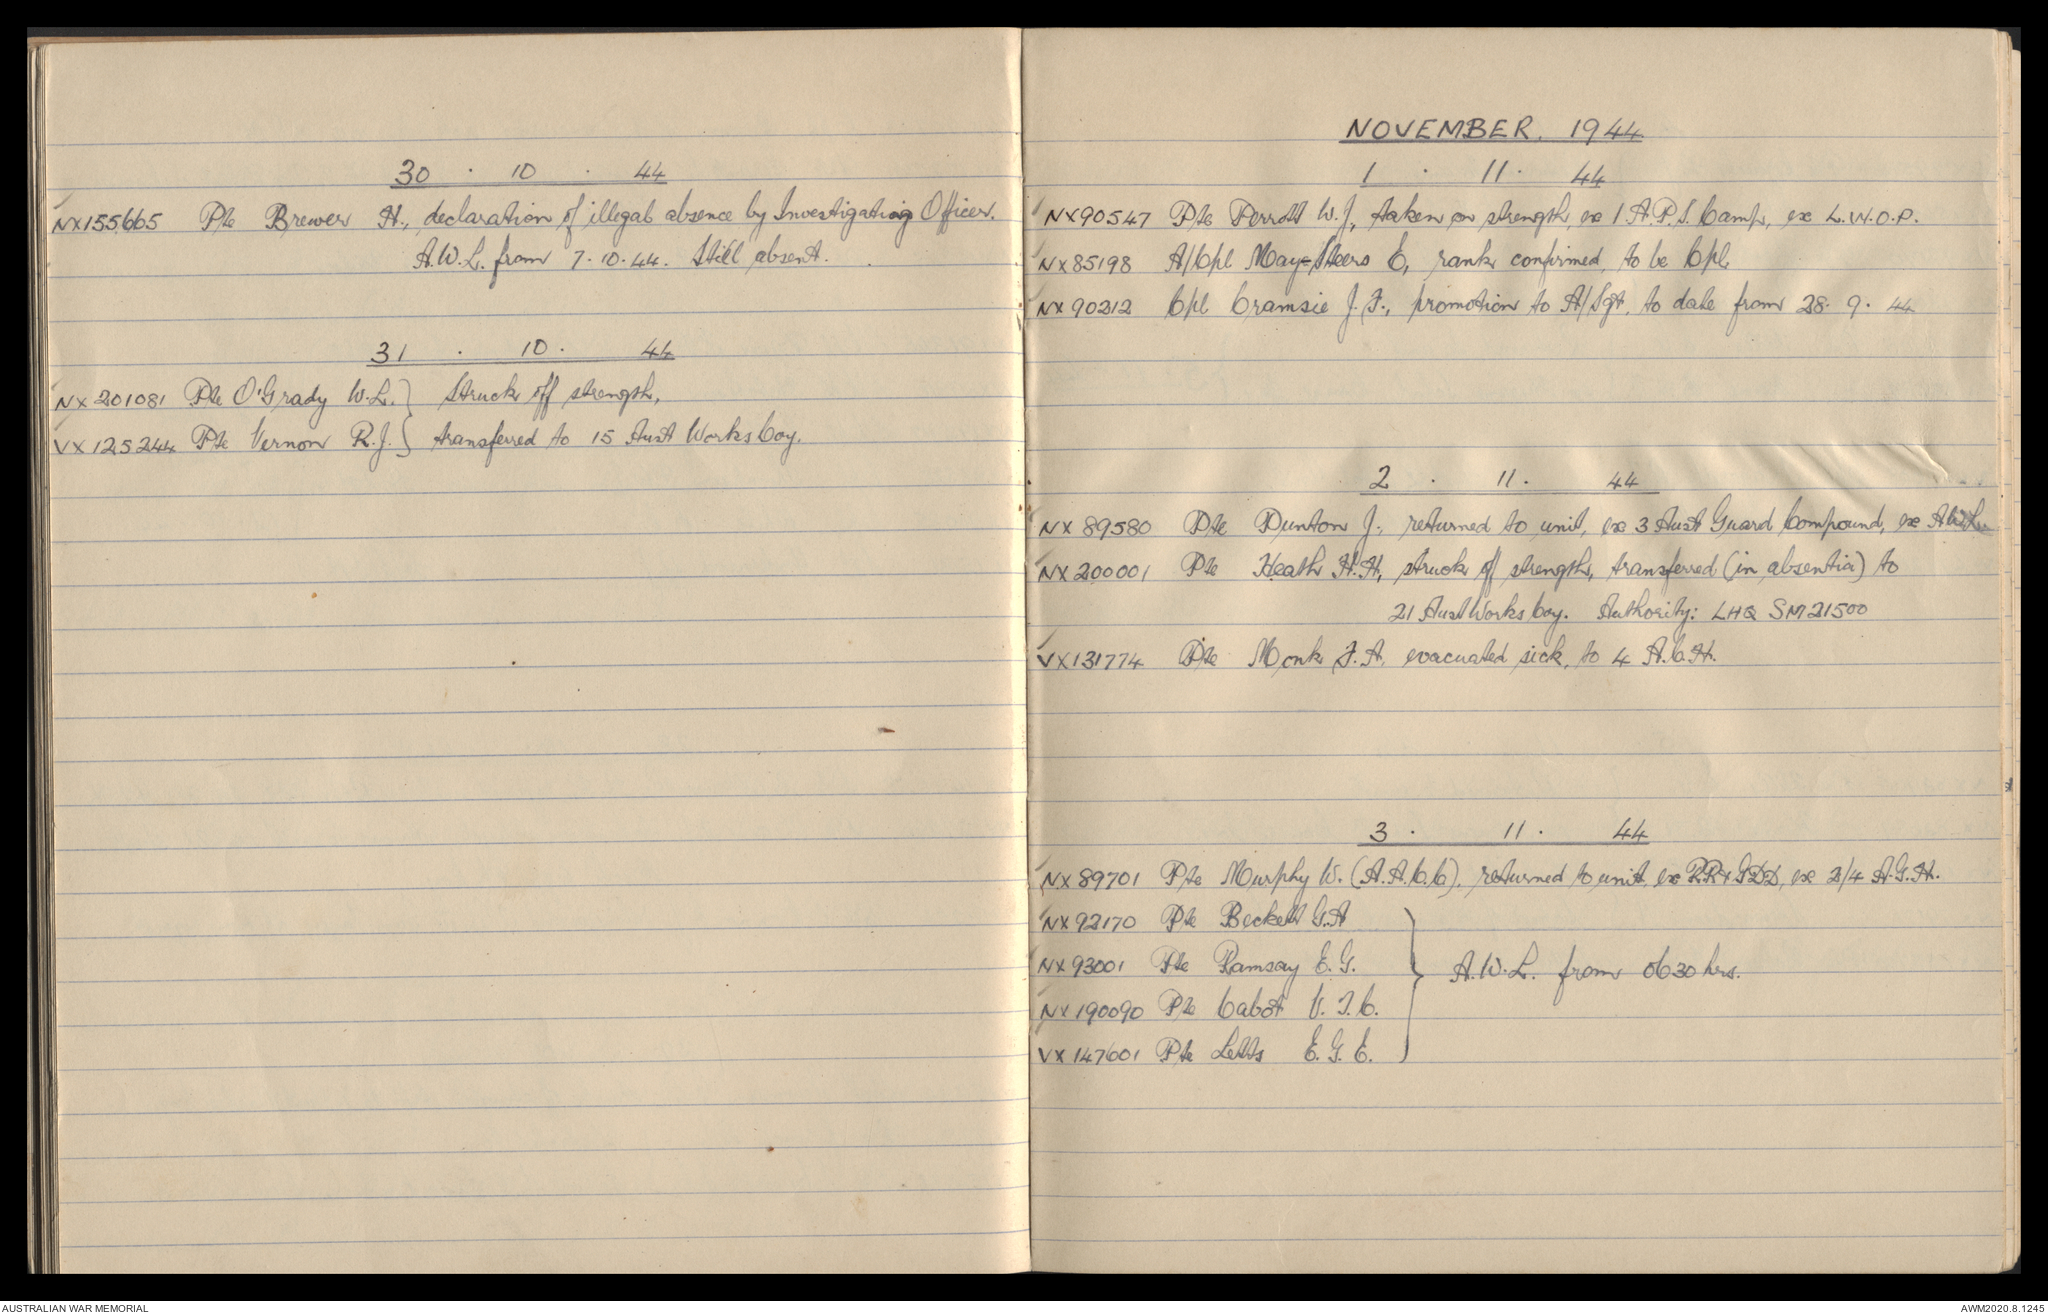 30 . 10 . 44
NX155665 Pte Brewer H., declaration of illegal absence by Investigating Officer.
A.W.L. from 7.10.44. Still absent.
31 . 10 . 44
NX201081 Pte O'Grady W.L. } Struck off strength,
VX125244 Pte Vernon R.J. } transferred to 15 Aust Works Coy.
NOVEMBER, 1944
1 . 11 . 44
NX90547 Pte Perrott W.J., taken on strength, ex 1 A.P.S. Camp, ex L.W.O.P.
NX85198 A/Cpl May-Steers E, rank confirmed, to be Cpl
NX90212 Cpl Cramsie J.F., promotion to A/Sgt, to date from 28.9.44
2 . 11 . 44
NX89580 Pte Dunton J., returned to unit, ex 3 Aust Guard Compound, ex AWL
NX200001 Pte Heath H.H, struck off strength, transferred (in absentia) to
21 Aust Works Coy. Authority: LHQ SM21500
VX131774 Pte Monk F.A. evacuated sick, to 4 A.C.H.
3 . 11 . 44
NX89701 Pte Murphy W. (A.A.C.C), returned to unit, ex RR&GDD, ex 2/4 A.G.H.
NX92170 Pte Beckett G.A
NX93001 Pte Ramsay E.G.
NX190090 Pte Cabot V.I.C.
VX147601 Pte Letts E.G.E.
} A.W.L. from 0630 hrs.
AUSTRALIAN WAR MEMORIAL
AWM2020.8.1245